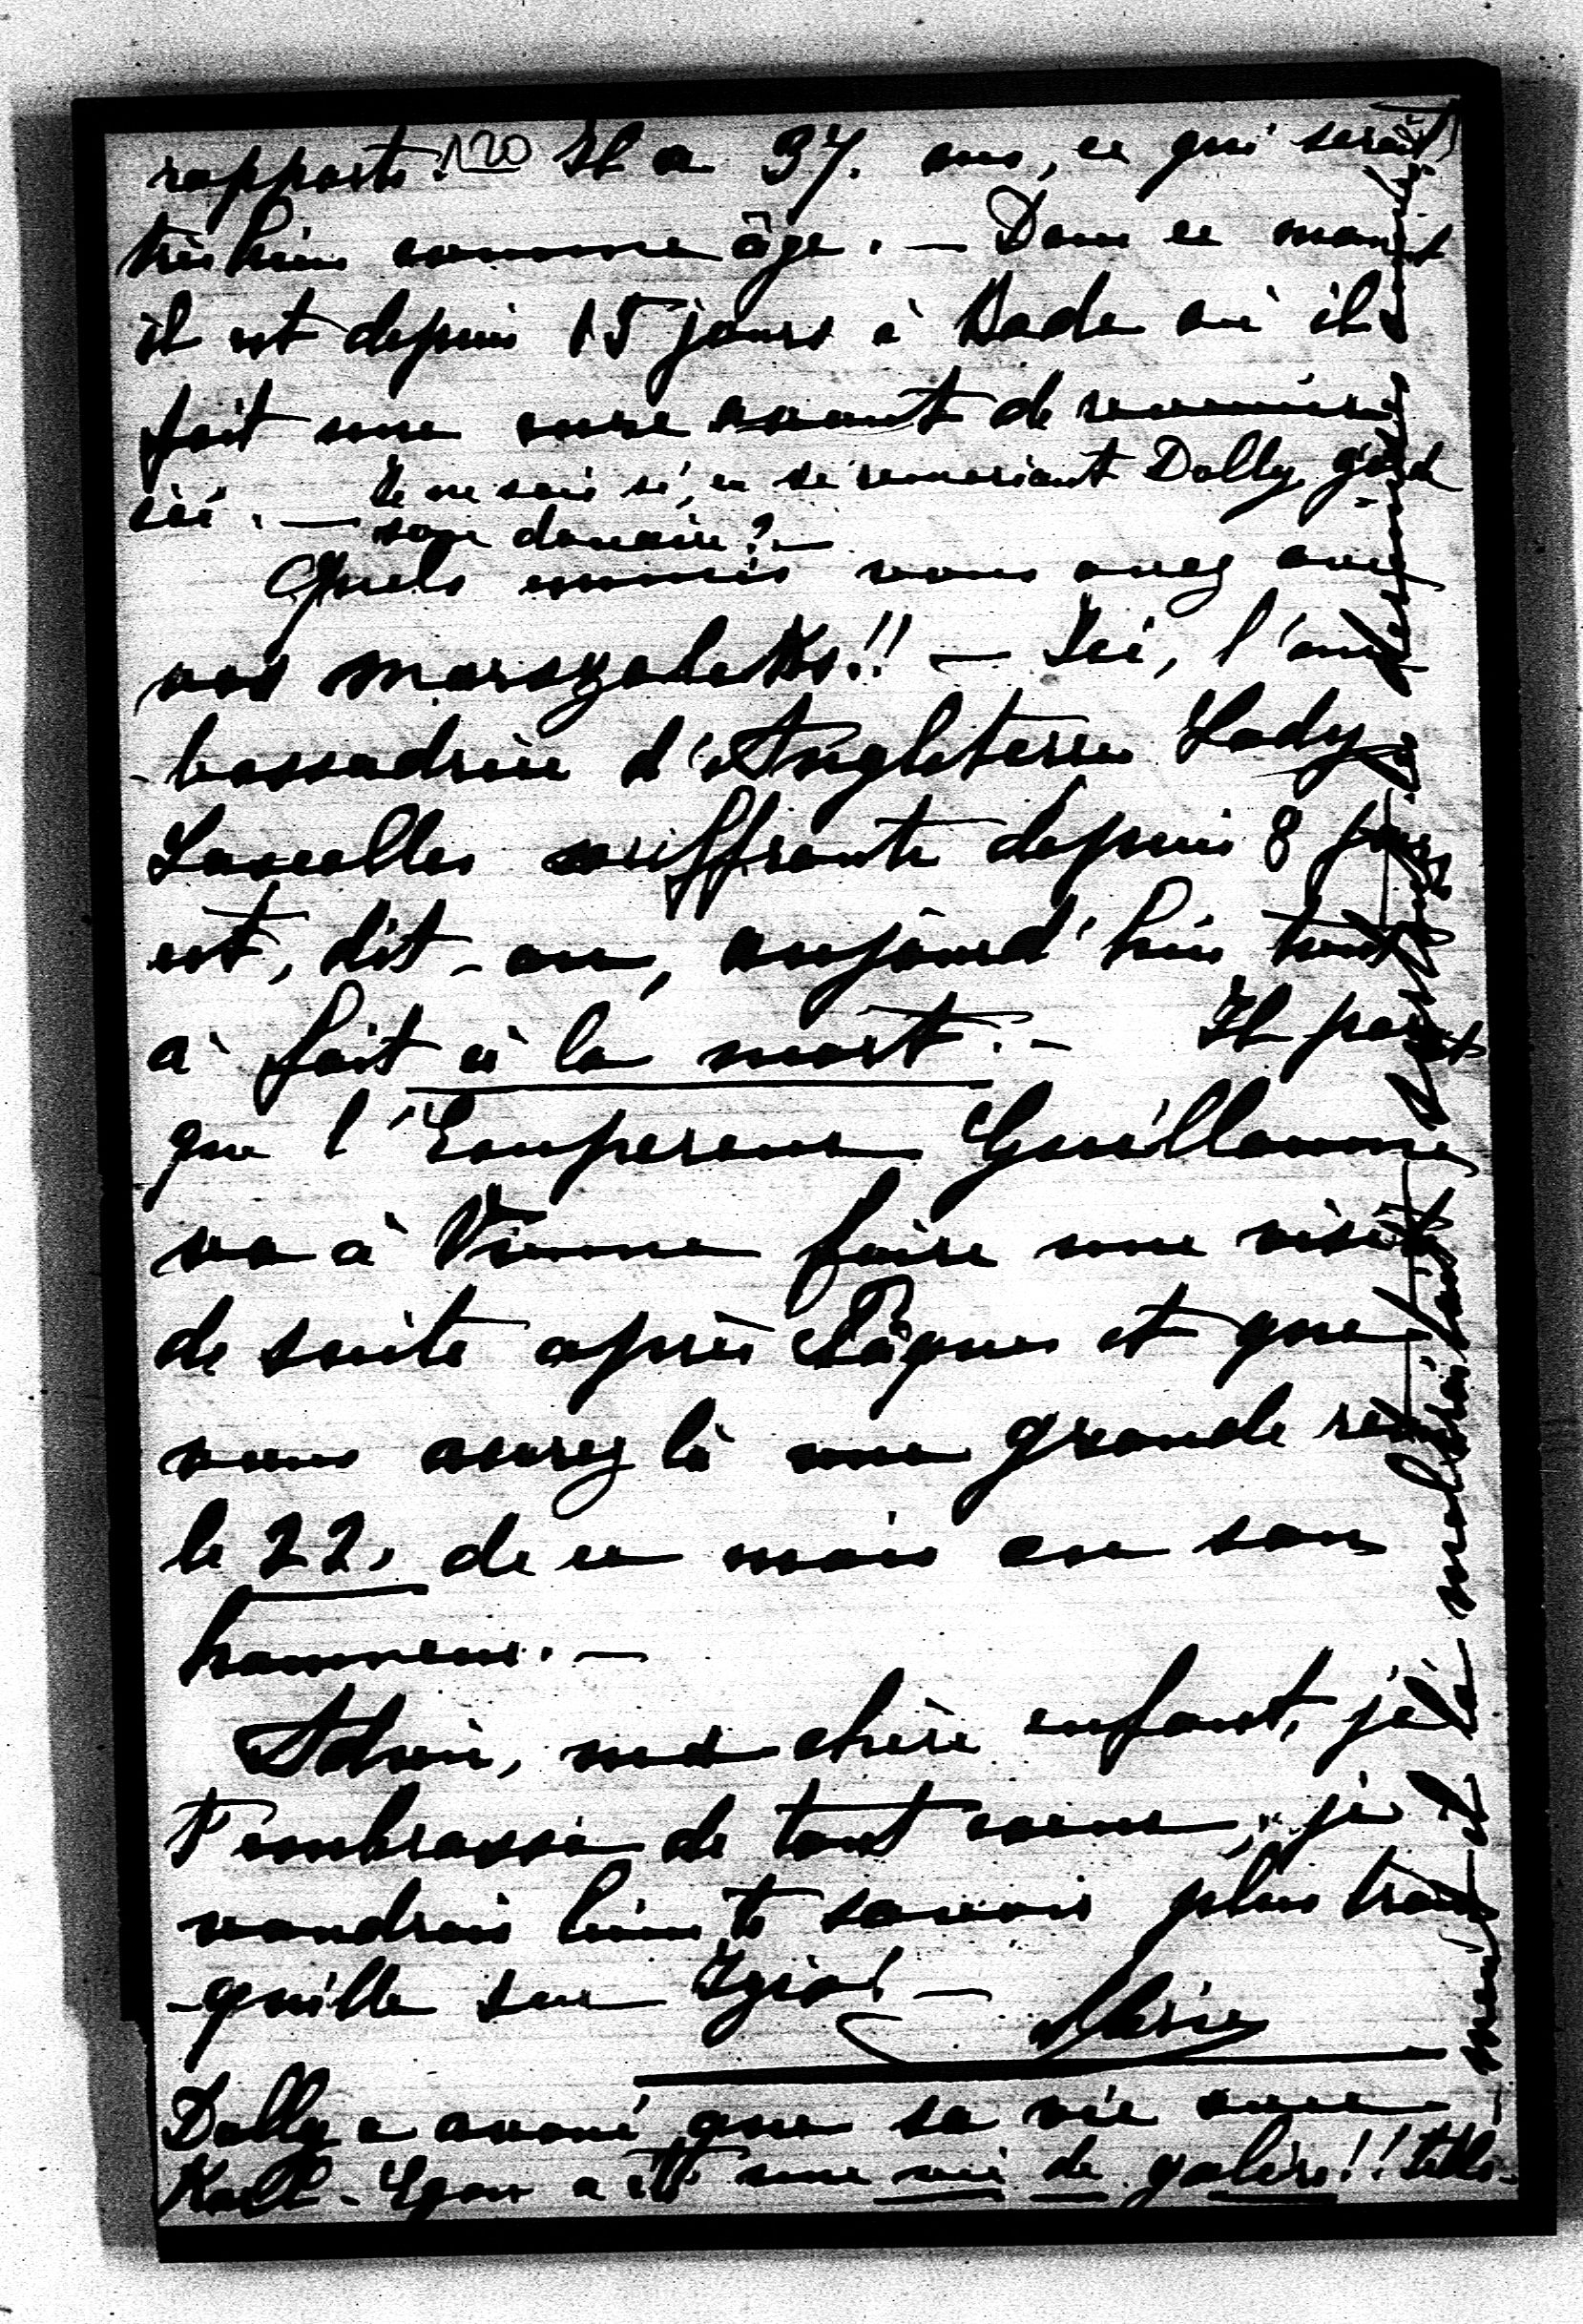 rapports. 120 Il a 37. ans, ce qui serait
très bien comme âge. — Dans ce moment
il est depuis 15 jours à Bade où il
fait une cure avant de revenir
ici. — Je ne sais si, en se remariant Dolly, garde
son douaire? —
Quels ennuis vous avez avec
vos marszaleks!! — Ici, l'am
-bassadrice d'Angleterre Lady
Lascelles souffrante depuis 8 jours
est, dit-on, aujourd'hui tout
à fait à la mort. — Il parait
que l'Empereur Guillaume
va à Vienne faire une visite
de suite après Pâques et que
vous aurez là une grande
le 22. de ce mois en son
honneur. —
Adieu, ma chère enfant, je
t'embrasse de tout coeur, je
voudrais bien te savoir plus tran
-quille sur Izio! — Marie
Dolly a avoué que sa vie avec
Karl-Egon a été une vie de galère!!
-ment il la maltraitait